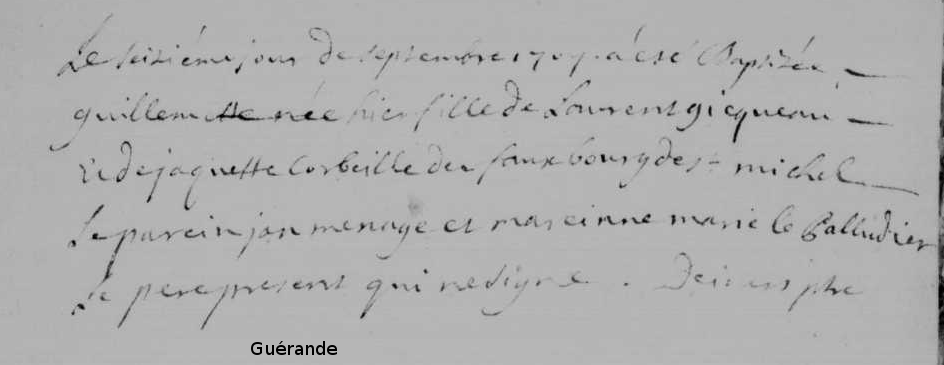 Le seiziéme jour de septembre 1707 a été Baptizée
guillemette née hier fille de Laurent gicqueau
et de jaquette Corbeille du fauxbourg de st michel
Le parein jan menage et mareinne marie le Palludier
Le pere present qui ne signe . ptre
Guérande